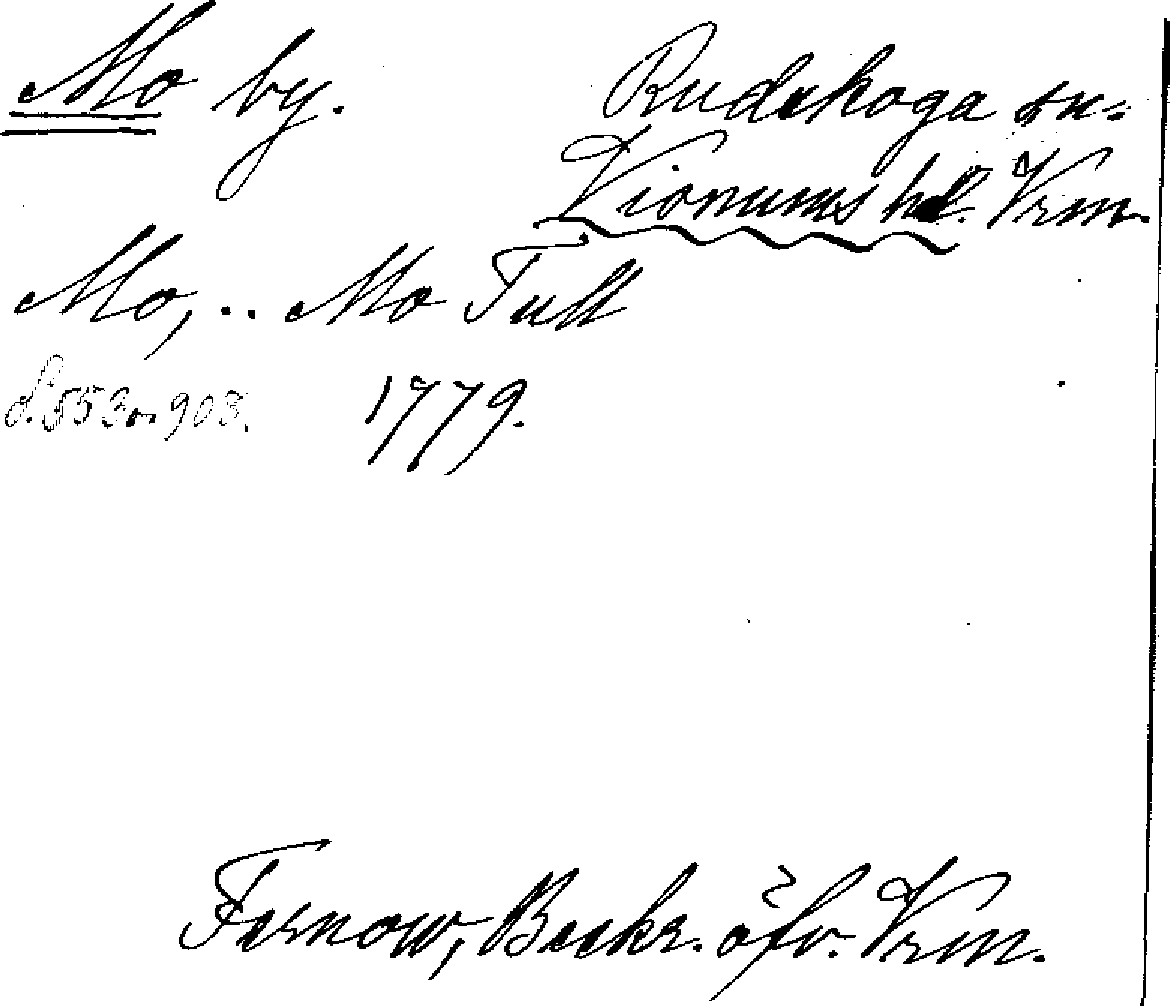 Mo by. Rudskoga sn.
Visnums hd. Vrm.
Mo, .. Mo Tull
S. 553 o. 903. 1779.
Fernow, Beskr. öfv. Vrm.